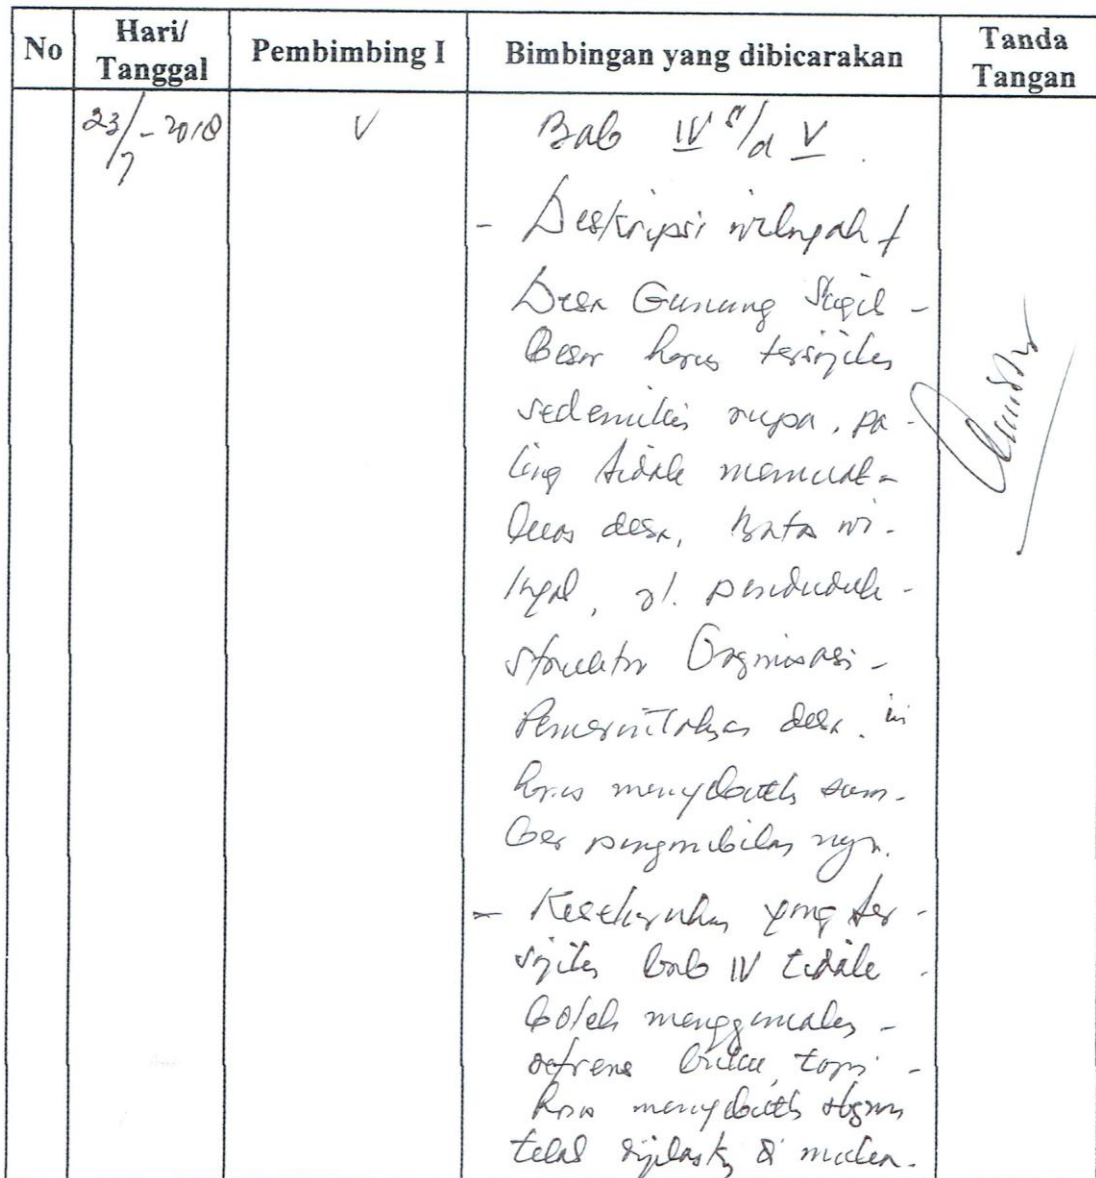 No Hari/ Tanggal Pembimbing I Bimbingan yang dibicarakan Tanda Tangan
23/7-2018 V Bab IV s/d V.
- Deskripsi wilayah /
Desa Gunung Sugih -
Besar harus tersajikan
sedemikian rupa, pa-
ling tidak memuat -
luas desa, batas wi-
layah, jl. penduduk -
struktur Organisasi -
Pemerintahan desa. ini
harus menyebutkan sum-
ber pengambilan nya.
- Keseluruhan yang ter-
sajikan bab IV tidak
boleh menggunakan -
refrensi buku, tapi -
harus menyebutkan sbgmn
telah dijelaskan di muka.